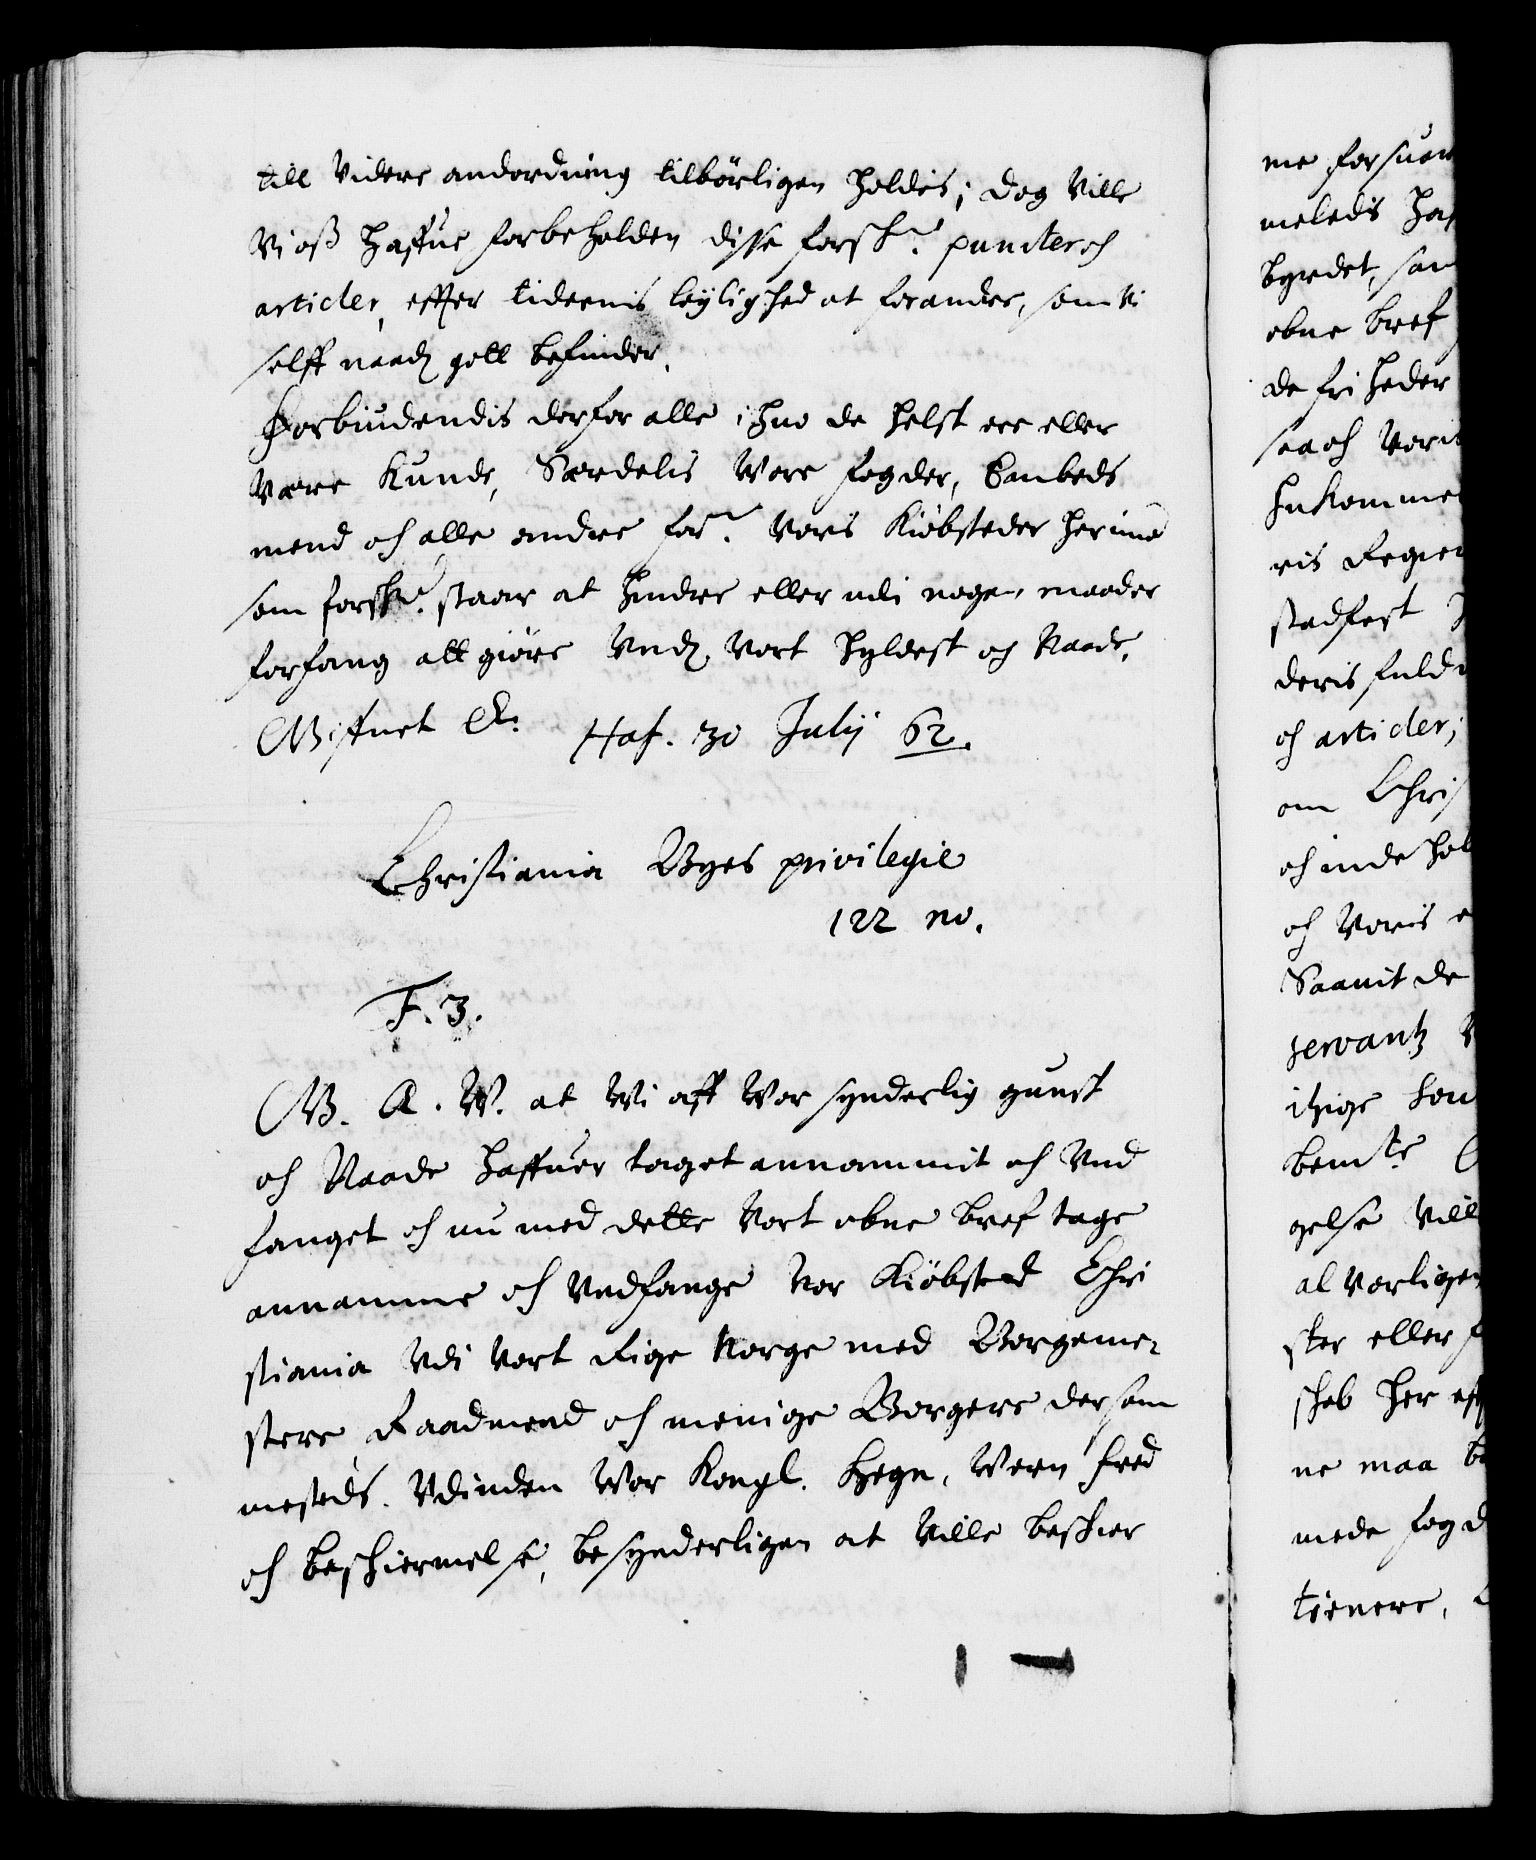 till Videre anordning tilbörligen holdis; dog Ville
Vi oß haffue forbeholden disse forsk.ne puncter och
articler, effter tidernis leyligShed at forandre, som Vi
selff naad. gott befinder.
Forbiudendis derfor alle i huo de helst ere eller
Være Kunde, Særdelis Vore fogder, Embeds
mend och alle andre for.ne Voris Kiöbsteder herimod
som forsk.et staar at hindre eller udi noger maader
forfang att giöre Vnd. Vort hyldest og Naade.
Giffuet &c. Haf. 30 Julij 62.
Christiania Byes privilegie
122 no.
F. 3.
G. A. W. at Vi aff Vor synderlig gunst
och Naade haffuer taget annammit och Vnd
fanget och nu med dette Vort obne bref tage
annamme och Vndfange Vor Kiöbsted Chri
stiania Vdi Vort Rige Norge med Borgeme-
stere Raadmend och menige Borgere dersam
mesteds. Vdinden Vor Kongl. Hegn, Vern fred
och beskiermelse, besynderligen at Ville beskier
me forsuar
meleds haf
byrdet, sam
obne bref
de friheder
saa och Voris
hukomme
ris Regier
stadfest
deris fuld
och articler;
om Chris
och inde hol
och Voris
Saauit de
servantz
itzige
bem.te
gelse Vill
alvorligen
ster eller f
skab her eff
ne maa
mede fogd
tienere,